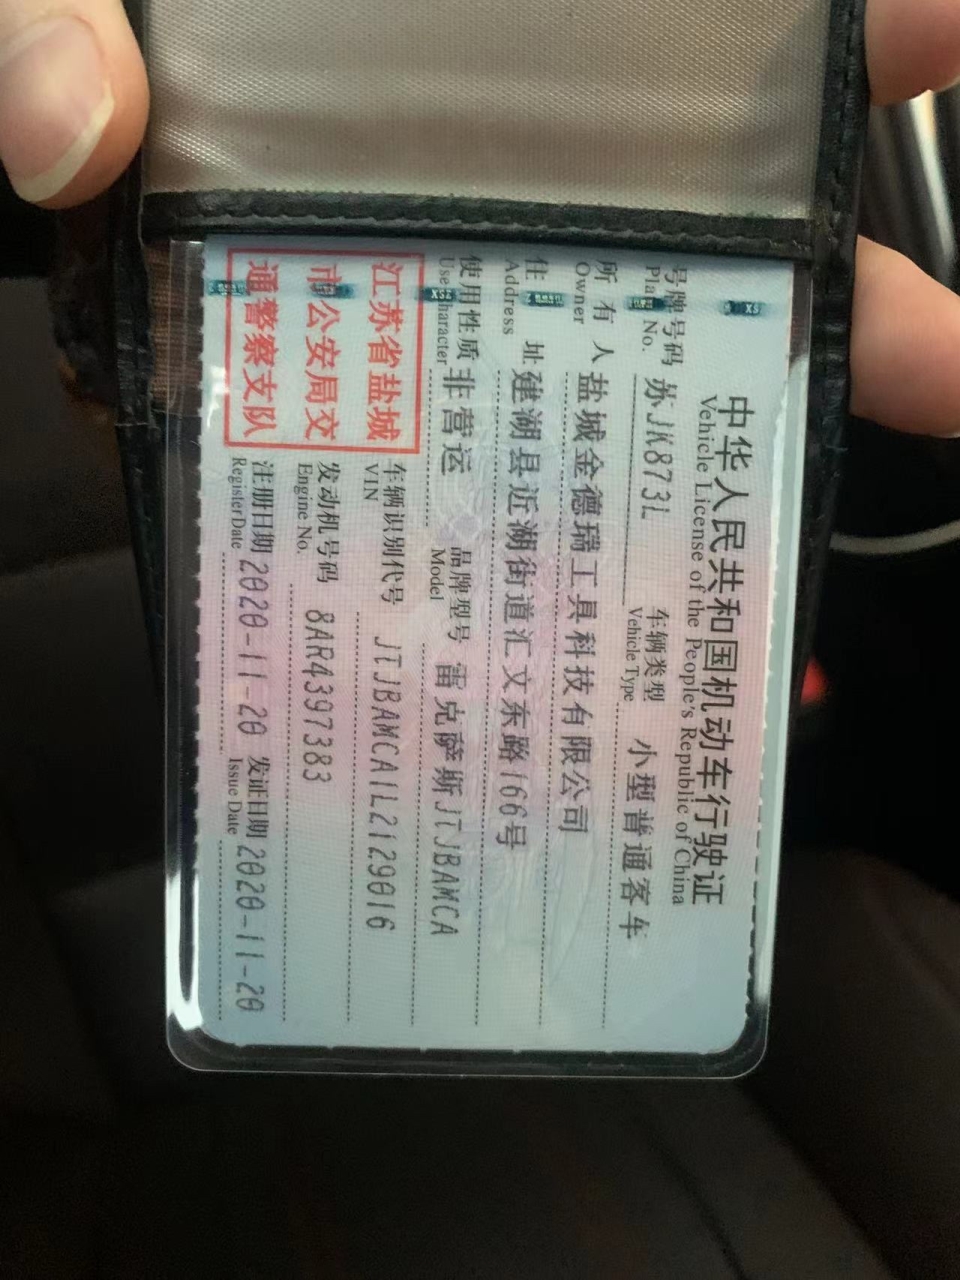 中华人民共和国机动车行驶证
Vehicle License of the People's Republic of China
号牌号码 苏JK873L 车辆类型 小型普通客车
Plate No. Vehicle Type
所有人 盐城金德瑞工具科技有限公司
Owner
住址 建湖县近湖街道汇文东路166号
Address
使用性质 非营运 品牌型号 雷克萨斯JTJBAMCA
Use Character Model
江苏省盐城
市公安局交
通警察支队
车辆识别代号 JTJBAMCA1L2129016
VIN
发动机号码 8AR4397383
Engine No.
注册日期 2020-11-20 发证日期 2020-11-20
Register Date Issue Date